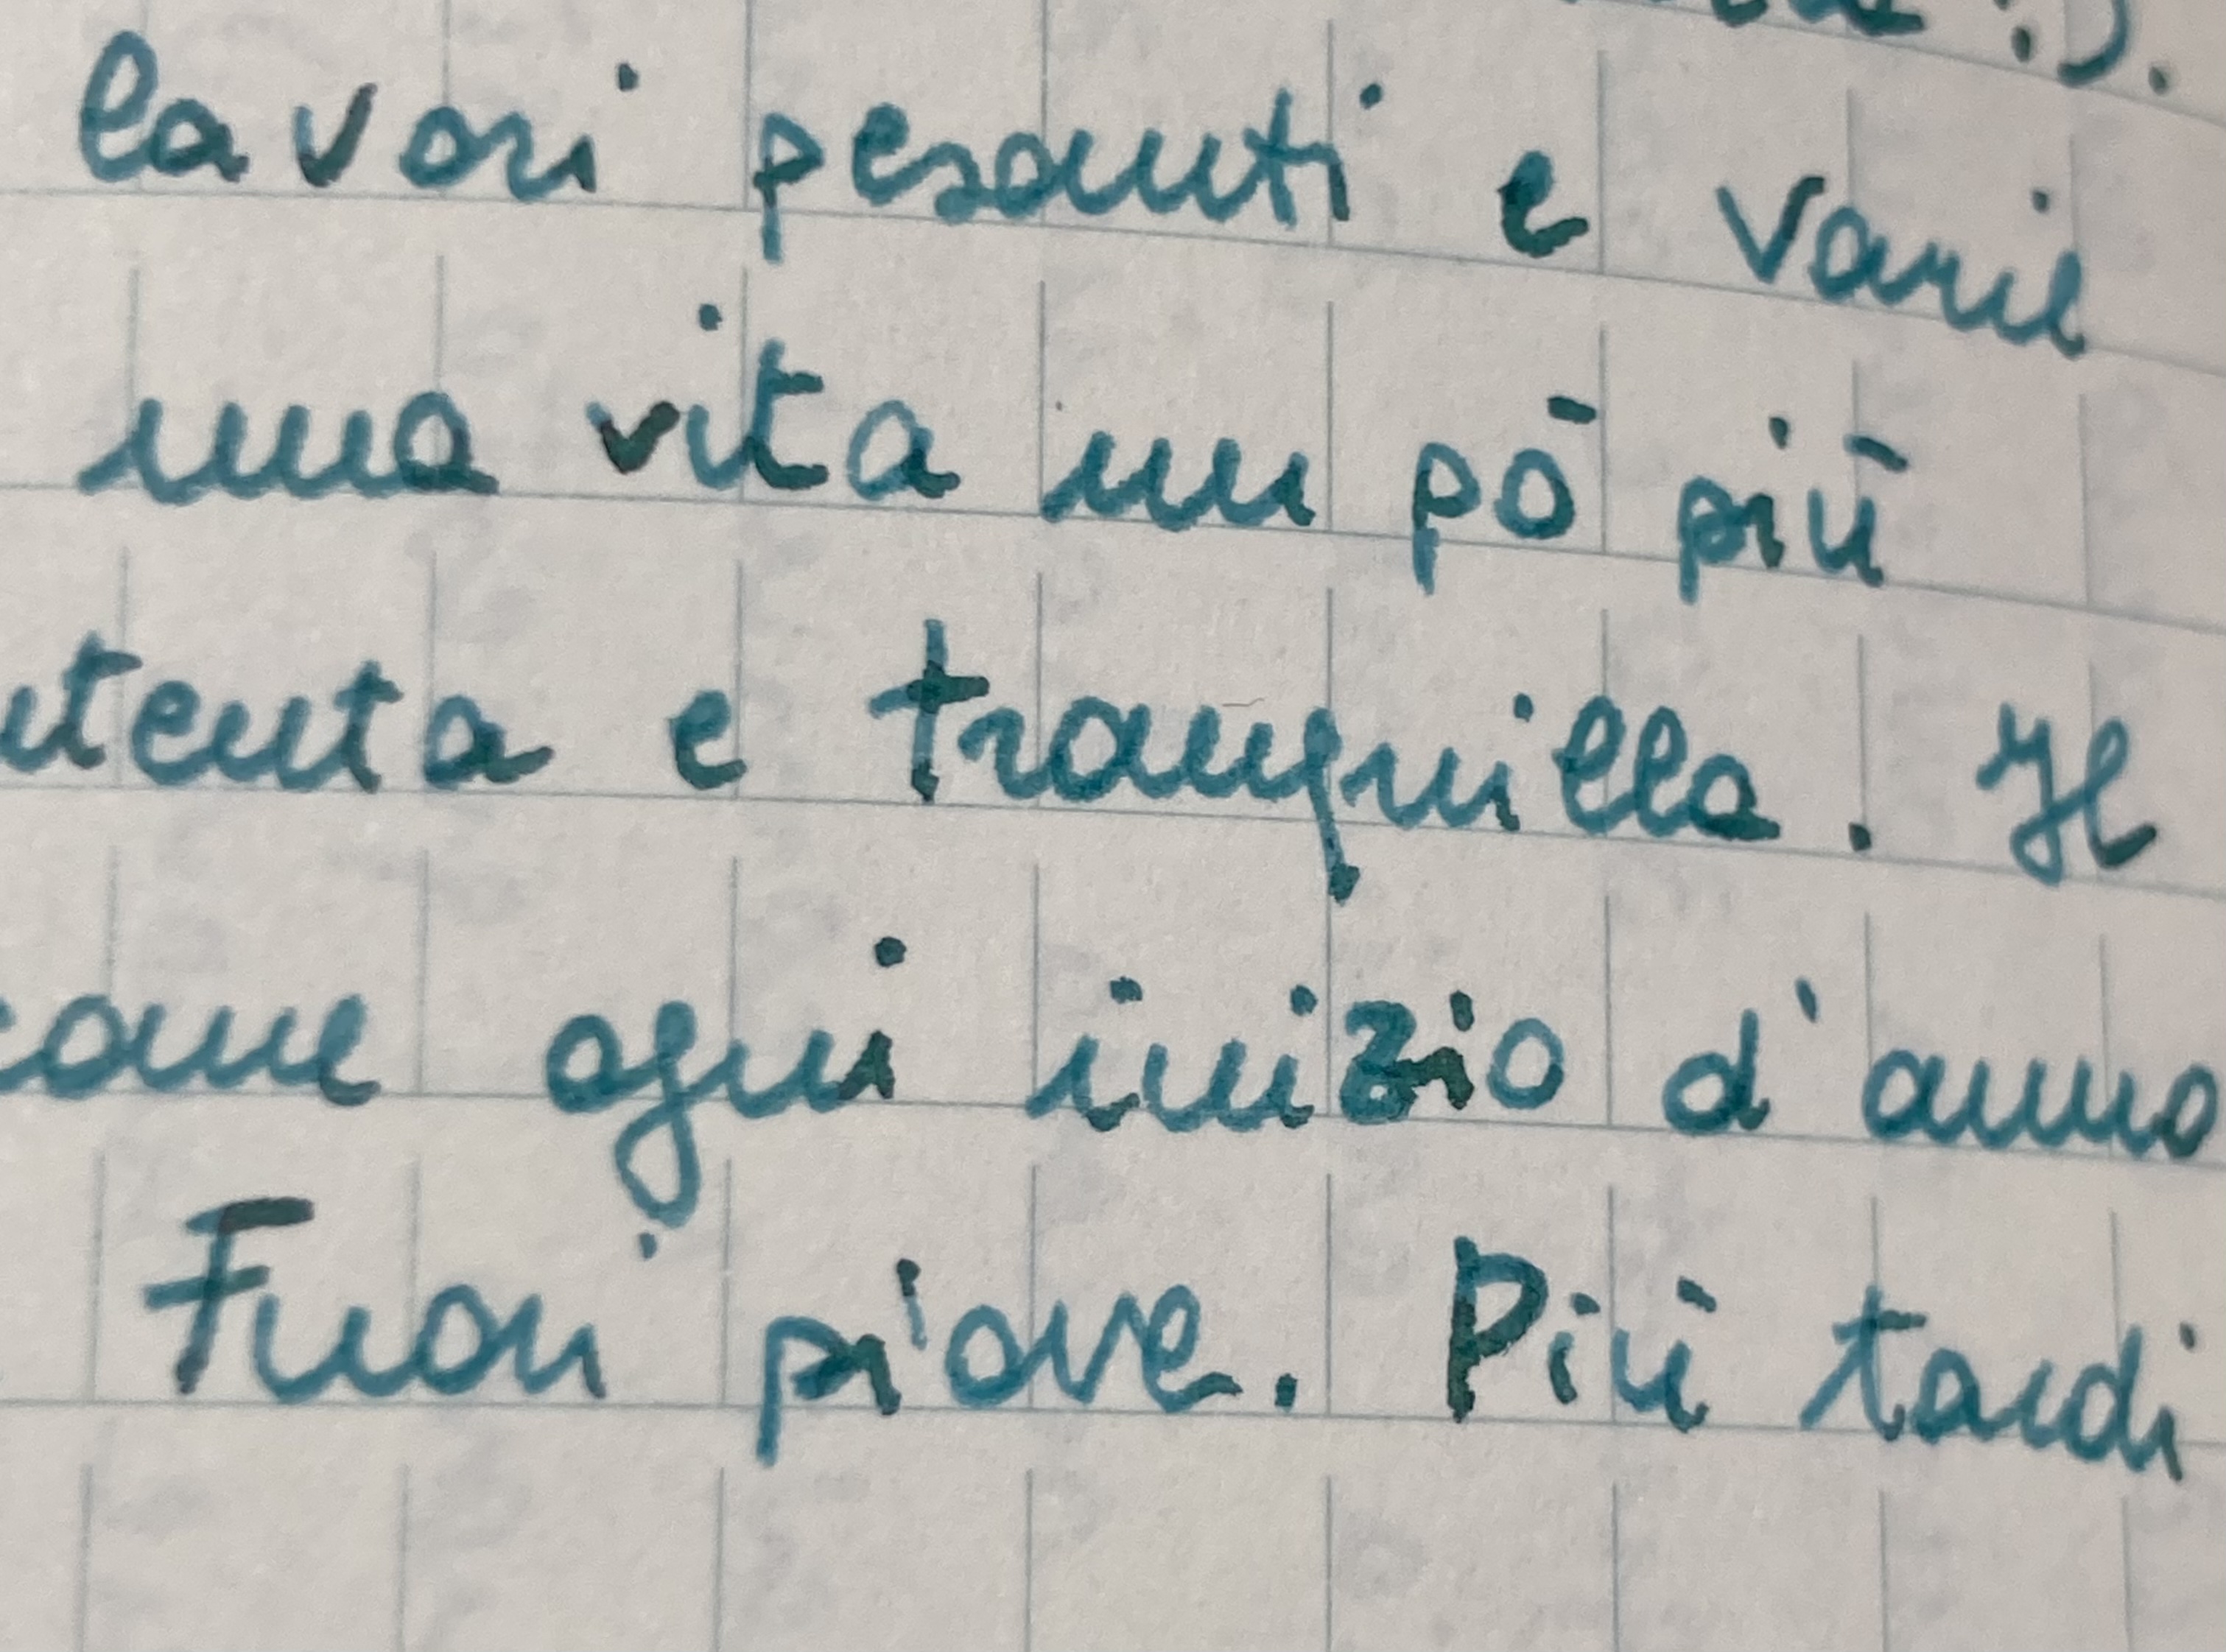 lavori pesanti e varie
una vita un pō più
ntenta e tranquilla. Il
come ogni inizio d'anno
Fuori piove. Più tardi